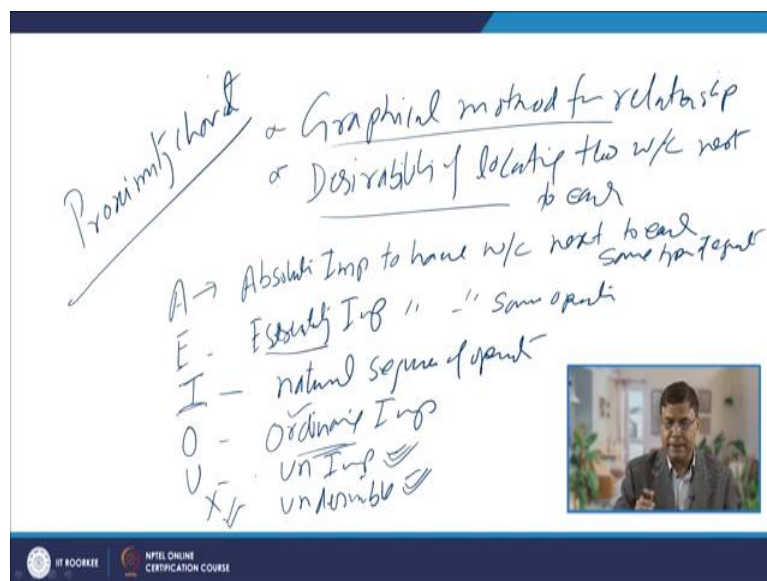 Proximity chart
Graphical method for relationship
Desirability of locating two w/c next
to each
A → Absolute Imp to have w/c next to each
same type of equit
E - Essentially Imp " - " same operati
I - natural sequence of operat
O - Ordinary Imp
U - Un Imp
X undesirable
IIT ROORKEE
NPTEL ONLINE
CERTIFICATION COURSE